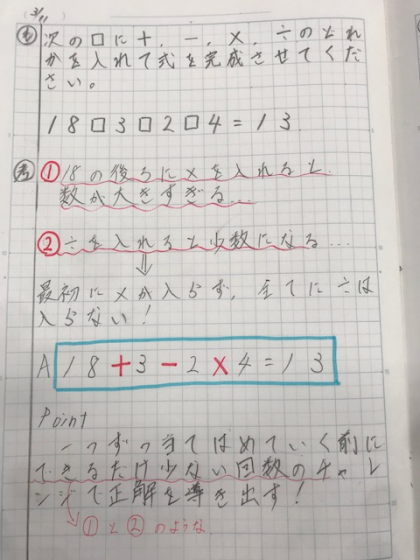 (3/11)
も 次の□に+, -, ×, ÷のどれ
かを入れて式を完成させてくだ
さい。
18□3□2□4=13
考 ① 18の後ろに×を入れると
数が大きすぎる...
② ÷を入れると少数になる...
最初に×が入らず, 全てに÷は
入らない!
A 18+3-2×4=13
Point
一つずつ当てはめていく前に
できるだけ少ない回数のチャレ
ンジで正解を導き出す!
①と②のような